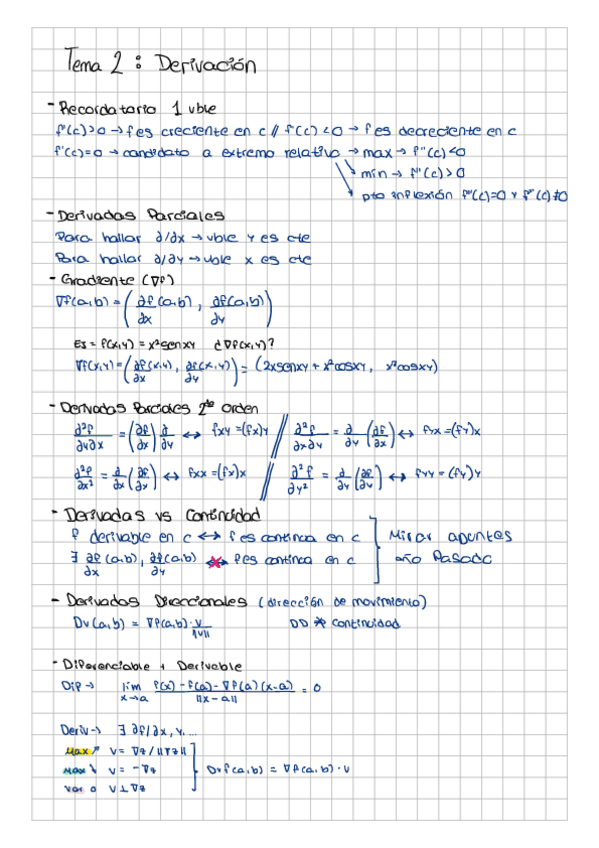 Tema 2 : Derivación
- Recordatorio 1 vble
f'(c)>0 → f es creciente en c // f'(c) <0 → f es decreciente en c
f'(c)=0 → candidato a extremo relativo → max → f''(c)<0
↘ min → f''(c)>0
↘ pto inflexión f''(c)=0 y f'''(c)≠0
- Derivadas Parciales
Para hallar ∂/∂x → vble y es cte
Para hallar ∂/∂y → vble x es cte
- Gradiente (∇f)
∇f(a,b) = (∂f/∂x (a,b), ∂f/∂y (a,b))
Ej = f(x,y) = x²senxy ¿∇f(x,y)?
∇f(x,y) = (∂f/∂x (x,y), ∂f/∂y (x,y)) = (2xsenxy + x²cosxy, x²cosxy)
- Derivadas Parciales 2do orden
∂²f/∂y∂x = (∂f/∂x) ∂/∂y ↔ fxy = (fx)y // ∂²f/∂x∂y = ∂/∂y (∂f/∂x) ↔ fyx = (fy)x
∂²f/∂x² = ∂/∂x (∂f/∂x) ↔ fxx = (fx)x // ∂²f/∂y² = ∂/∂y (∂f/∂y) ↔ fyy = (fy)y
- Derivadas vs Continuidad
f derivable en c ↔ f es continua en c
∃ ∂f/∂x (a,b), ∂f/∂y (a,b) ↔ f es continua en c
Mirar apuntes
año pasado
- Derivadas Direccionales (dirección de movimiento)
Dv(a,b) = ∇f(a,b)· v/||v|| DD ⇏ continuidad
- Diferenciable + Derivable
Dif → lim x→a f(x) - f(a) - ∇f(a)(x-a) / ||x-a|| = 0
Deriv → ∃ ∂f/∂x, y, ...
Max ↗ v = ∇z / ||∇z||
Max ↘ v = -∇z
Var 0 v ⊥ ∇z
Dvf(a,b) = ∇f(a,b) · v